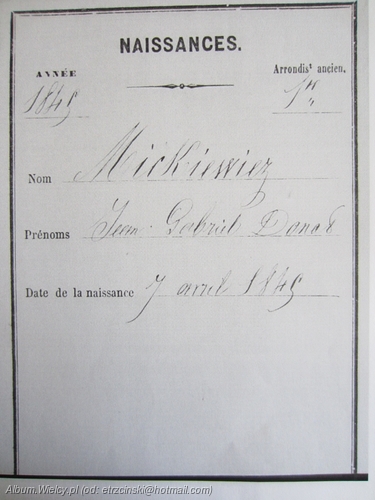 NAISSANCES.
ANNÉE
Arrondist ancien.
1849
1er
Nom Mickiewicz
Prénoms Jean Gabriel Donat
Date de la naissance 7 avril 1849
Album.Wielcy.pl (od: etrzcinski@hotmail.com)